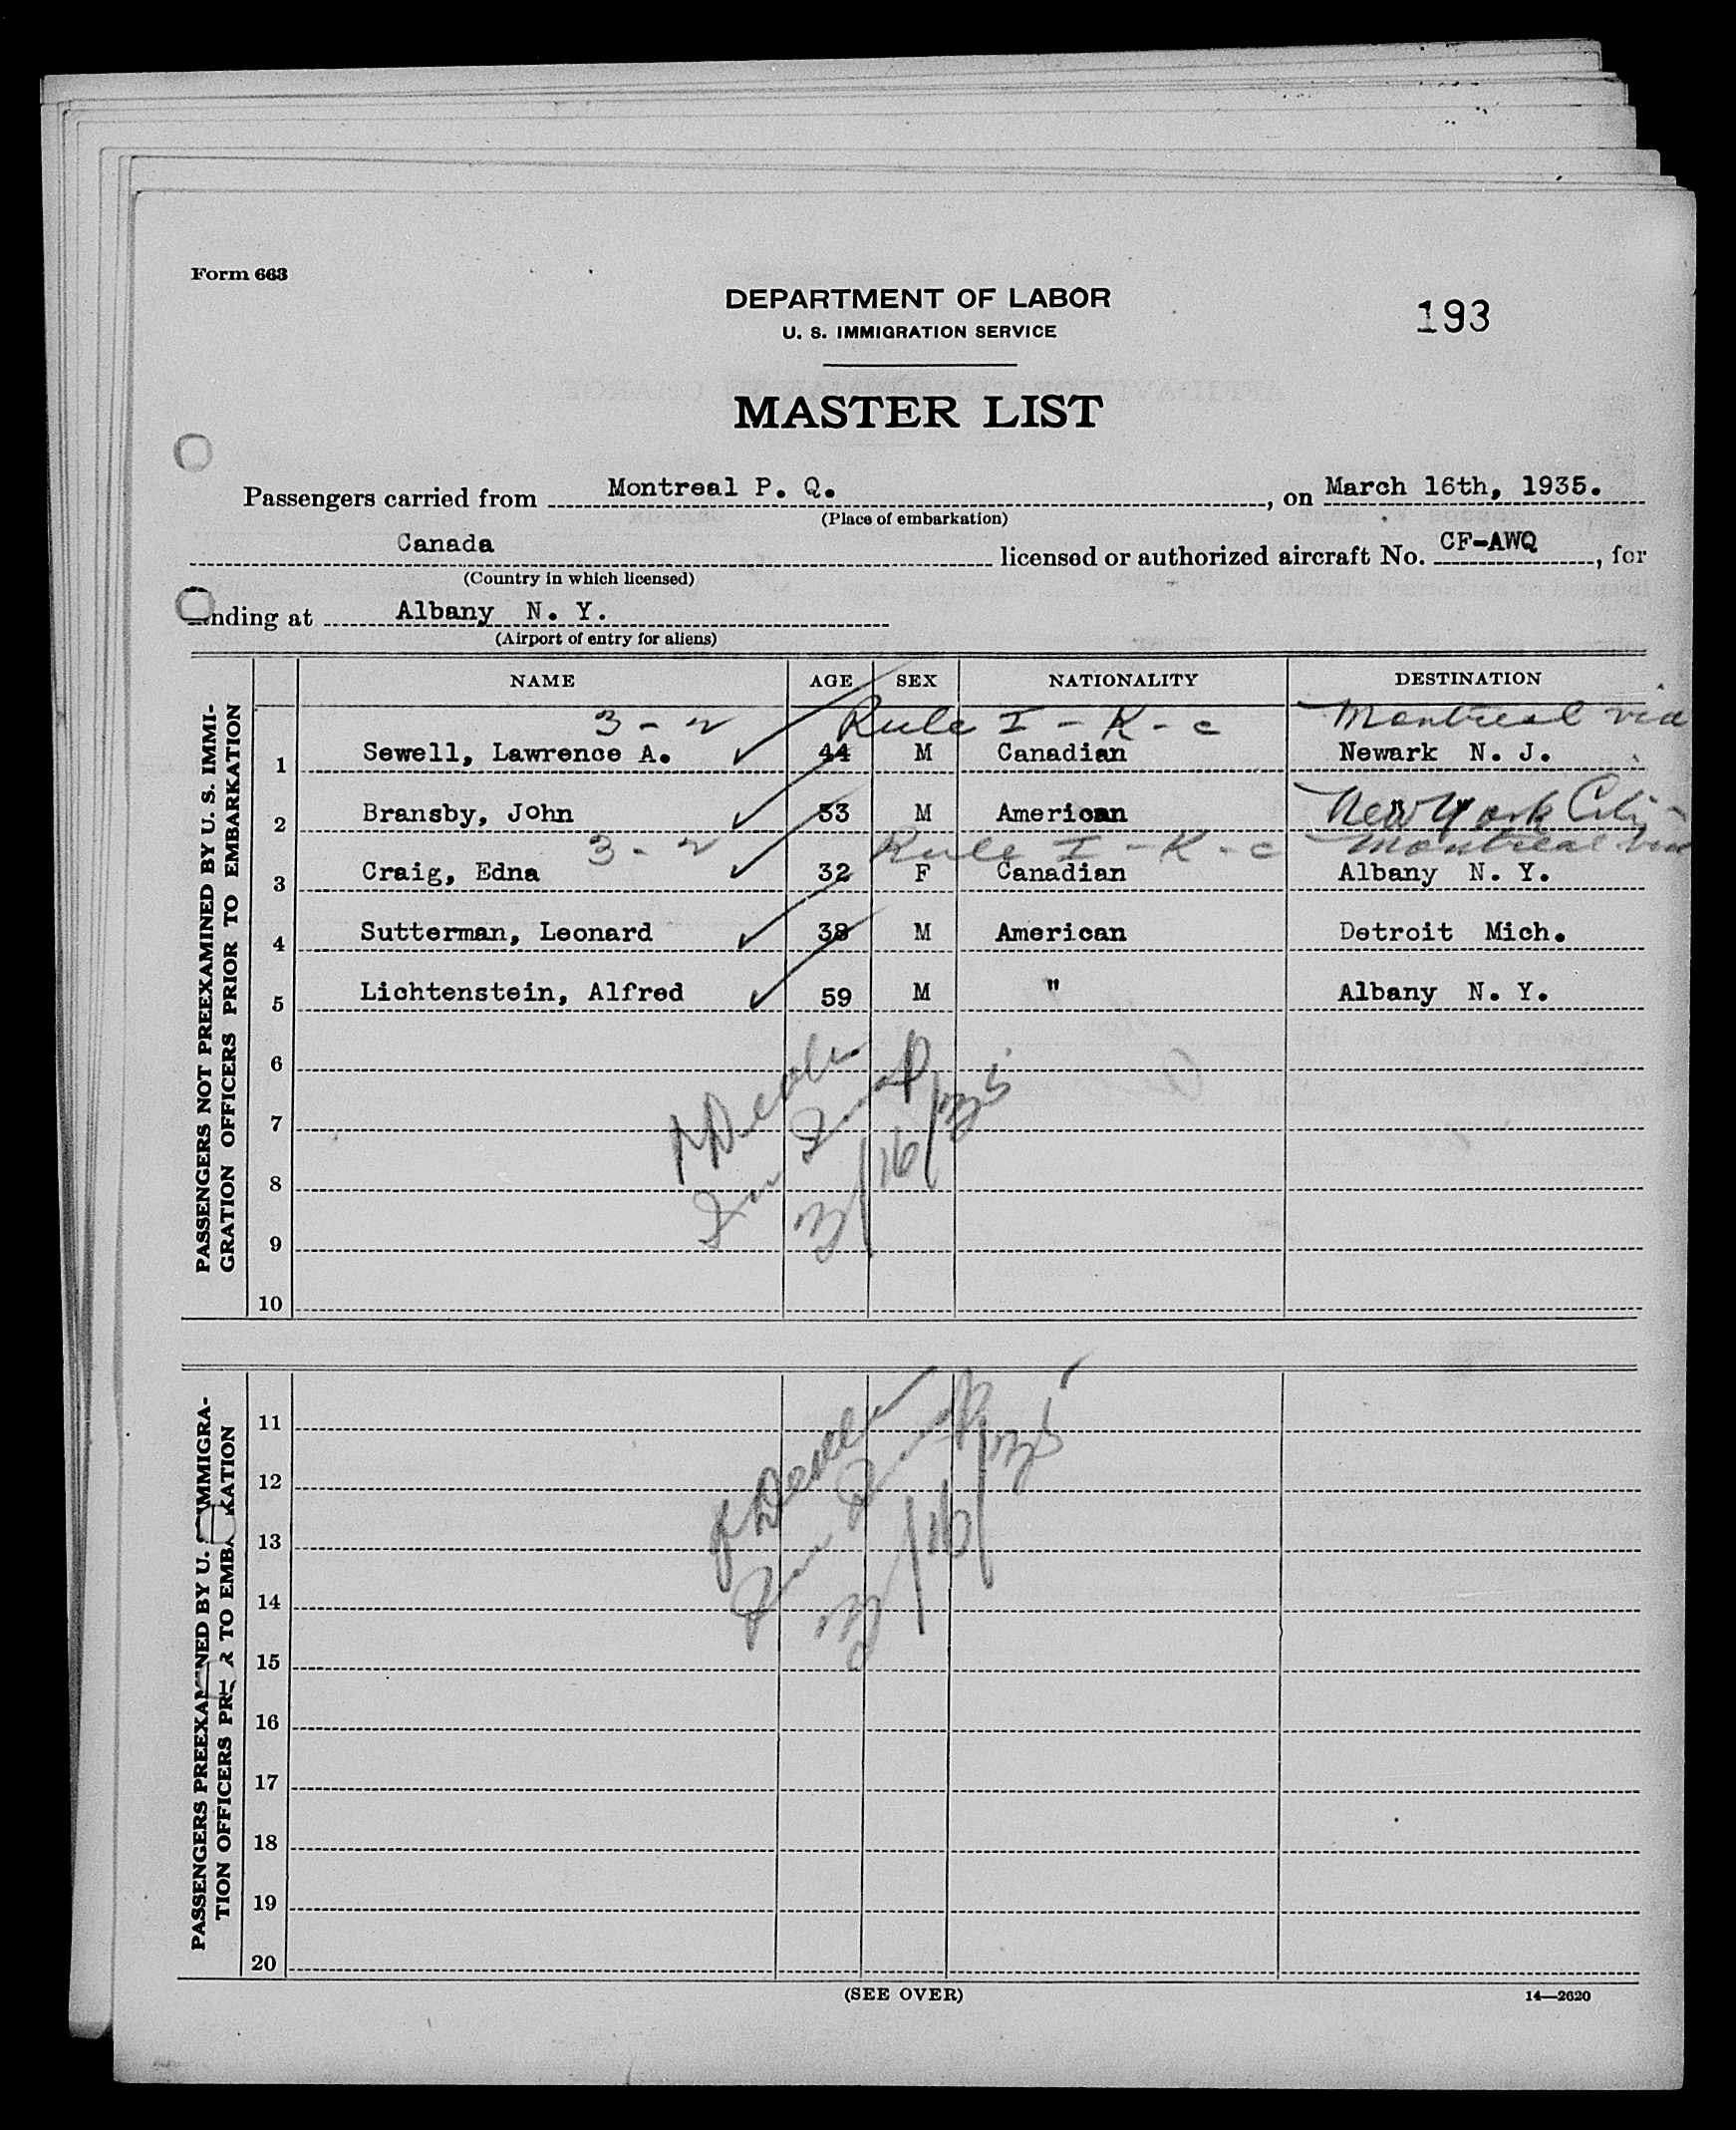 Form 663
DEPARTMENT OF LABOR
U. S. IMMIGRATION SERVICE
193
MASTER LIST
Passengers carried from Montreal P. Q., on March 16th, 1935.
(Place of embarkation)
Canada licensed or authorized aircraft No. CF-AWQ, for
(Country in which licensed)
nding at Albany N. Y.
(Airport of entry for aliens)
PASSENGERS NOT PREEXAMINED BY U. S. IMMI-
GRATION OFFICERS PRIOR TO EMBARKATION
NAME AGE SEX NATIONALITY DESTINATION
3 - 2 Rule I - K - c Montreal via
1 Sewell, Lawrence A. 44 M Canadian Newark N. J.
2 Bransby, John 53 M American New York City
3 - 2 Rule I - K - c Montreal via
3 Craig, Edna 32 F Canadian Albany N. Y.
4 Sutterman, Leonard 38 M American Detroit Mich.
5 Lichtenstein, Alfred 59 M " Albany N. Y.
6
7
8
9
10
3/16/35
PASSENGERS PREEXAMINED BY U. S. IMMIGRA-
TION OFFICERS PRIOR TO EMBARKATION
11
12
13
14
15
16
17
18
19
20
3/16/35
(SEE OVER)
14—2620